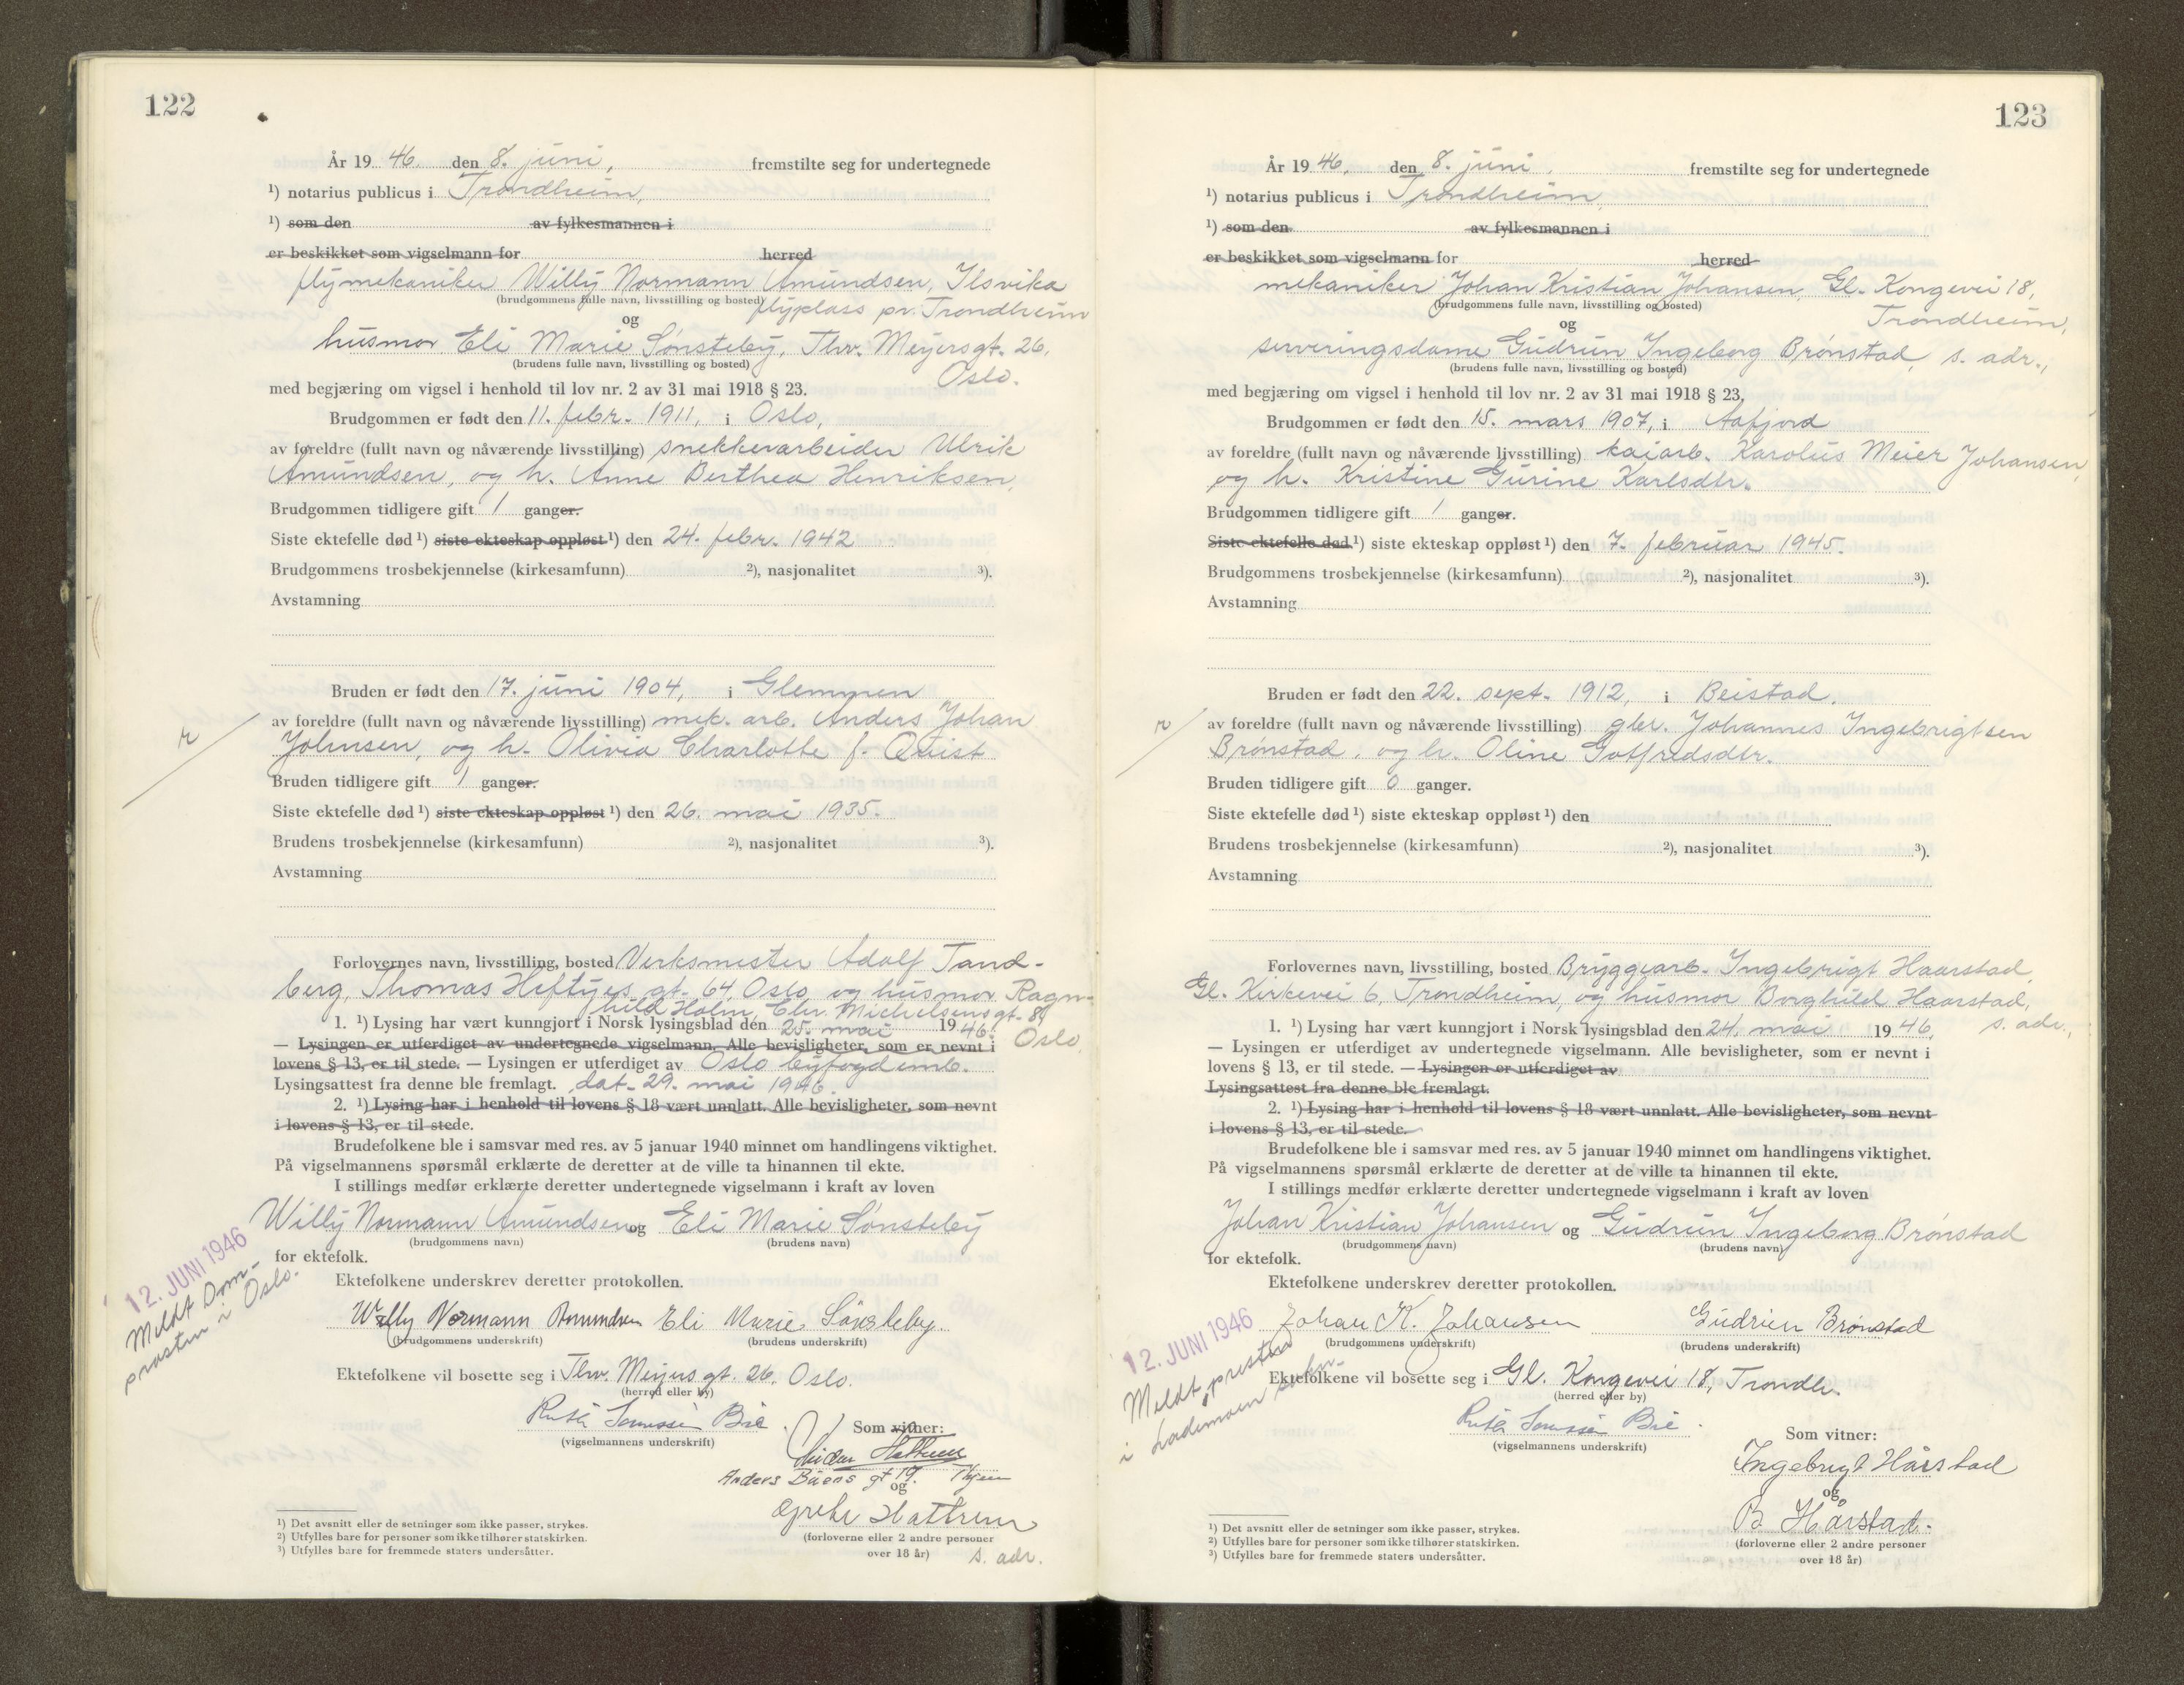 122
År 19 46. den 8. juni, fremstilte seg for undertegnede
¹) notarius publicus i Trondheim,
¹) som den av fylkesmannen i
er beskikket som vigselmann for herred
flymekaniker Willy Normann Amundsen, Ilsvika
(brudgommens fulle navn, livsstilling og bosted) flyplass pr. Trondheim
og
husmor Eli Marie Sønsteby, Thv. Meyersgt. 26,
(brudens fulle navn, livsstilling og bosted) Oslo.
med begjæring om vigsel i henhold til lov nr. 2 av 31 mai 1918 § 23.
Brudgommen er født den 11. febr. 1911, i Oslo,
av foreldre (fullt navn og nåværende livsstilling) snekkerarbeider Ulrik
Amundsen, og h. Anne Berthea Henriksen,
Brudgommen tidligere gift 1 ganger.
Siste ektefelle død ¹) siste ekteskap oppløst ¹) den 24. febr. 1942
Brudgommens trosbekjennelse (kirkesamfunn) ²), nasjonalitet ³).
Avstamning
Bruden er født den 17. juni 1904, i Glemmen
av foreldre (fullt navn og nåværende livsstilling) mek. arb. Anders Johan
Johnsen, og h. Olivia Charlotte f. Quist
r
Bruden tidligere gift 1 ganger.
Siste ektefelle død ¹) siste ekteskap oppløst ¹) den 26. mai 1935.
Brudens trosbekjennelse (kirkesamfunn) ²), nasjonalitet ³).
Avstamning
Forlovernes navn, livsstilling, bosted Verksmester Adolf Tand-
berg, Thomas Heftyes gt. 64, Oslo og husmor Ragn-
hild Holm, Chr. Michelsensgt. 89
1. ¹) Lysing har vært kunngjort i Norsk lysingsblad den 25. mai 19 46. Oslo,
— Lysingen er utferdiget av undertegnede vigselmann. Alle bevisligheter, som er nevnt i
lovens § 13, er til stede. — Lysingen er utferdiget av Oslo byfogdemb.
Lysingsattest fra denne ble fremlagt. dat. 29. mai 1946.
2. ¹) Lysing har i henhold til lovens § 18 vært unnlatt. Alle bevisligheter, som nevnt
i lovens § 13, er til stede.
Brudefolkene ble i samsvar med res. av 5 januar 1940 minnet om handlingens viktighet.
På vigselmannens spørsmål erklærte de deretter at de ville ta hinannen til ekte.
I stillings medfør erklærte deretter undertegnede vigselmann i kraft av loven
Willy Normann Amundsen og Eli Marie Sønsteby
(brudgommens navn) (brudens navn)
for ektefolk.
12. JUNI 1946
Meldt Dom-
prosten i Oslo.
Ektefolkene underskrev deretter protokollen.
Willy Normann Amundsen Eli Marie Sønsteby.
(brudgommens underskrift) (brudens underskrift)
Ektefolkene vil bosette seg i Thv. Meyers gt. 26, Oslo.
(herred eller by)
Ruth Bie
(vigselmannens underskrift)
Som vitner:
Hattrem
Anders Buens gt 19. Thjem
og
Grethe Hattrem
(forloverne eller 2 andre personer
over 18 år) s. adr.
¹) Det avsnitt eller de setninger som ikke passer, strykes.
²) Utfylles bare for personer som ikke tilhører statskirken.
³) Utfylles bare for fremmede staters undersåtter.
123
År 19 46. den 8. juni, fremstilte seg for undertegnede
¹) notarius publicus i Trondheim
¹) som den av fylkesmannen i
er beskikket som vigselmann for herred
mekaniker Johan Kristian Johansen, Gl. Kongevei 18,
(brudgommens fulle navn, livsstilling og bosted) Trondheim,
og
serveringsdame Gudrun Ingeborg Brønstad, s. adr.,
(brudens fulle navn, livsstilling og bosted)
med begjæring om vigsel i henhold til lov nr. 2 av 31 mai 1918 § 23.
Brudgommen er født den 15. mars 1907, i Aafjord
av foreldre (fullt navn og nåværende livsstilling) kaiarb. Karolus Meier Johansen,
og h. Kristine Gurine Karlsdtr.
Brudgommen tidligere gift 1 ganger.
Siste ektefelle død ¹) siste ekteskap oppløst ¹) den 7. februar 1945.
Brudgommens trosbekjennelse (kirkesamfunn) ²), nasjonalitet ³).
Avstamning
Bruden er født den 22. sept. 1912, i Beistad.
av foreldre (fullt navn og nåværende livsstilling) gbr. Johannes Ingebrigtsen
Brønstad, og h. Oline Gotfredsdtr.
r
Bruden tidligere gift 0 ganger.
Siste ektefelle død ¹) siste ekteskap oppløst ¹) den
Brudens trosbekjennelse (kirkesamfunn) ²), nasjonalitet ³).
Avstamning
Forlovernes navn, livsstilling, bosted Bryggearb. Ingebrigt Haarstad,
Gl. Kirkevei 6, Trondheim, og husmor Borghild Haarstad,
1. ¹) Lysing har vært kunngjort i Norsk lysingsblad den 24. mai 19 46, s. adr.,
— Lysingen er utferdiget av undertegnede vigselmann. Alle bevisligheter, som er nevnt i
lovens § 13, er til stede. — Lysingen er utferdiget av
Lysingsattest fra denne ble fremlagt.
2. ¹) Lysing har i henhold til lovens § 18 vært unnlatt. Alle bevisligheter, som nevnt
i lovens § 13, er til stede.
Brudefolkene ble i samsvar med res. av 5 januar 1940 minnet om handlingens viktighet.
På vigselmannens spørsmål erklærte de deretter at de ville ta hinannen til ekte.
I stillings medfør erklærte deretter undertegnede vigselmann i kraft av loven
Johan Kristian Johansen og Gudrun Ingeborg Brønstad
(brudgommens navn) (brudens navn)
for ektefolk.
Ektefolkene underskrev deretter protokollen.
12. JUNI 1946
Meldt presten
i Lademoen
Johan K. Johansen Gudrun Brønstad
(brudgommens underskrift) (brudens underskrift)
Ektefolkene vil bosette seg i Gl. Kongevei 18, Trondh.
(herred eller by)
Ruth Bie
(vigselmannens underskrift)
Som vitner:
Ingebrigt Hårstad
og
B Hårstad.
(forloverne eller 2 andre personer
over 18 år)
¹) Det avsnitt eller de setninger som ikke passer, strykes.
²) Utfylles bare for personer som ikke tilhører statskirken.
³) Utfylles bare for fremmede staters undersåtter.